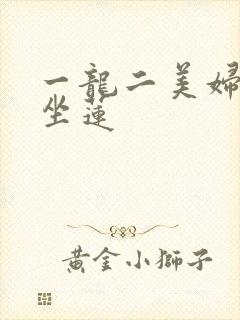 一龍二美婦
坐蓮
黃金小獅子